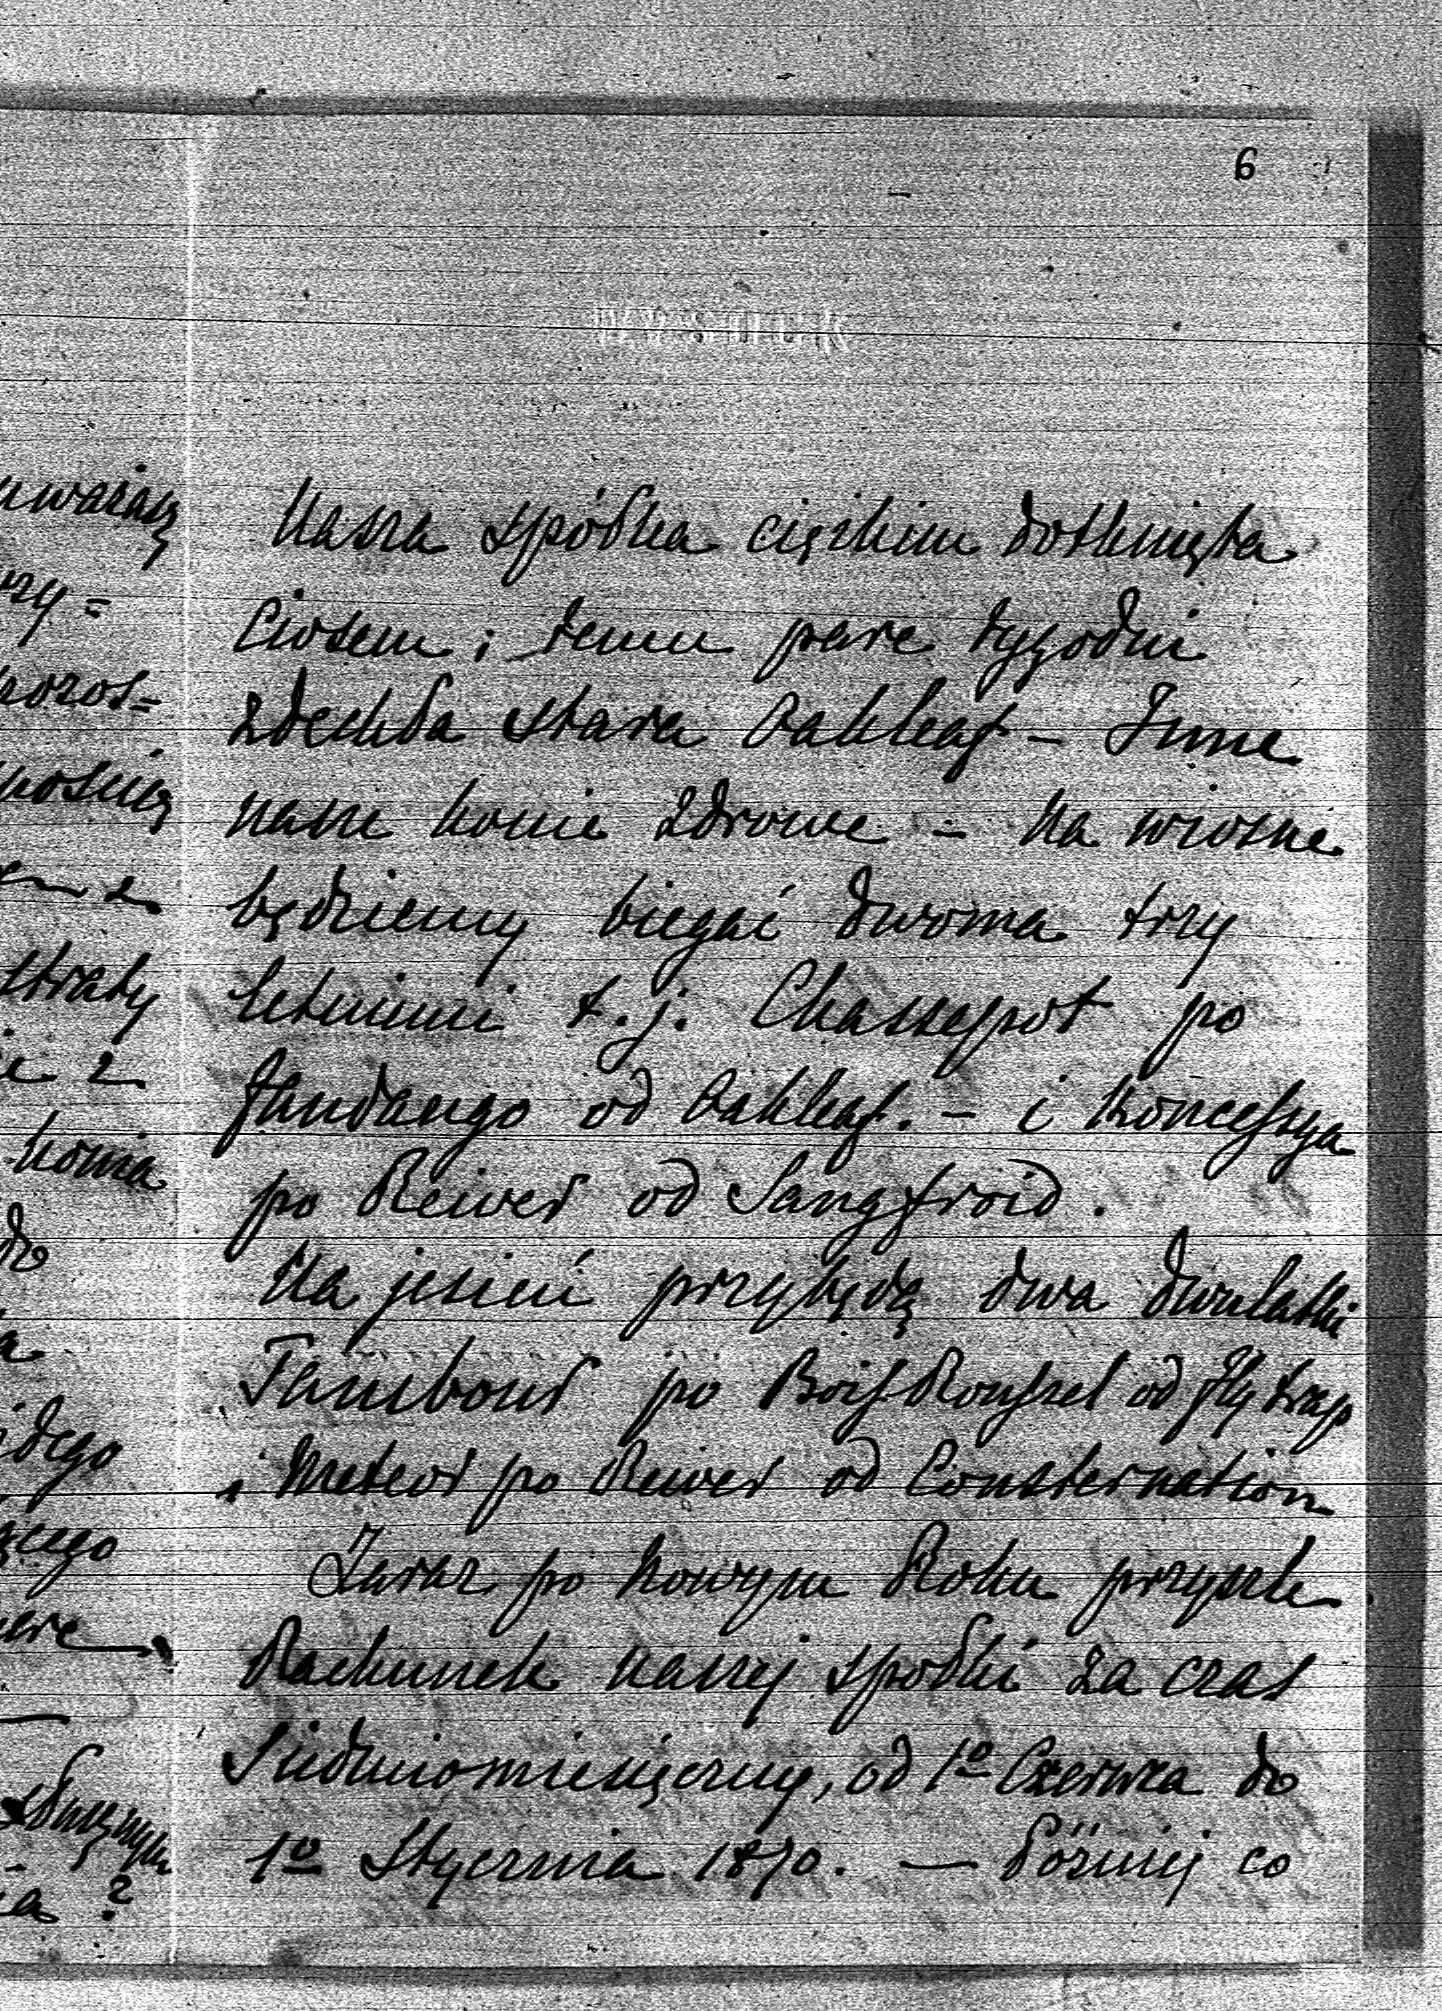 6
Nasza spółka cięzkim dotknięta
Ciosem; temu pare tygodni
zdechła stara Oakleaf – Inne
nasze konie zdrowe – Na wiosne
będziemy biegać dwoma trzy
letniemi t.j. Chassepot po
Fandango od Oakleaf. – i Koncessya
po Reiver od Sangfroid.
Na jesień przybędą dwa dwulatki
Tambour po Bois Roussel od Fly trap
i Meteor po Reiver od Consternation
Zaraz po Nowym Roku przyszle
Rachunek naszej spółki za czas
Siedmiomiesięczny, od 1º Czerwca do
1º Stycznia 1870. — Póżniej co
uważasz
rzy=
pozos=
nością
straty
ie z
konia
do
idego
ącego
?